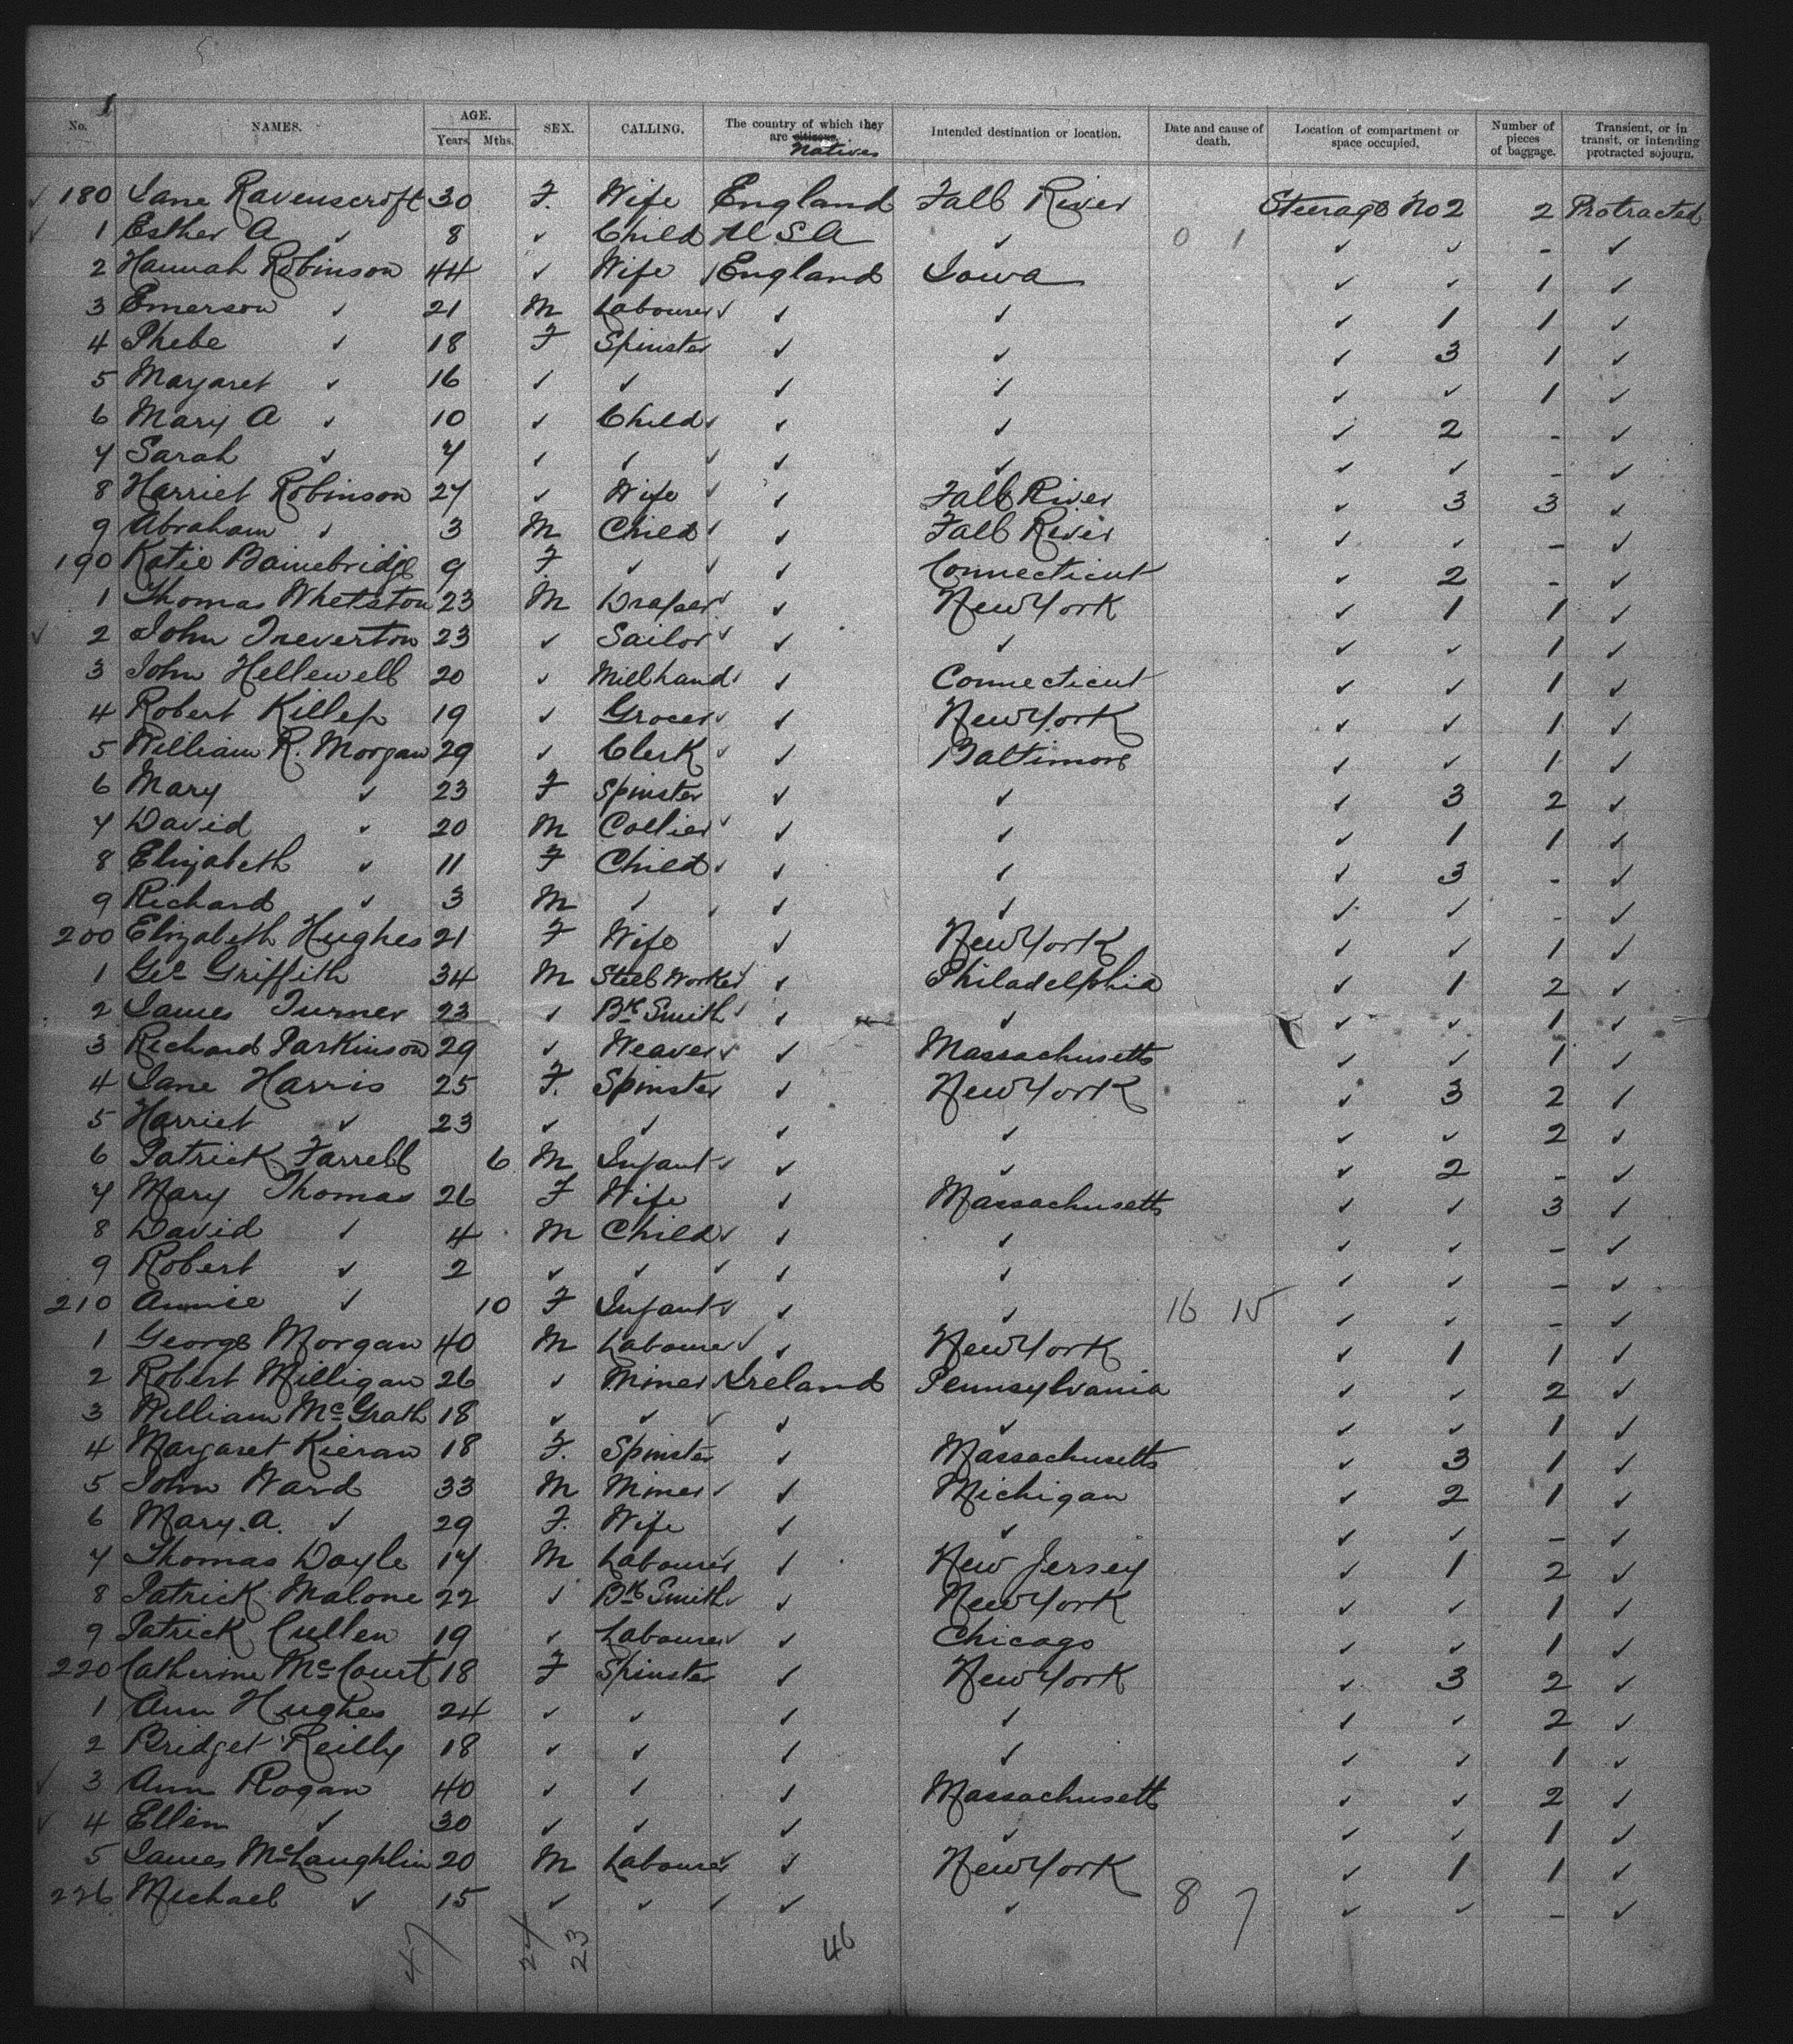 5
1
No. NAMES. AGE. Years. Mths. SEX. CALLING. The country of which they are citizens. Natives Intended destination or location. Date and cause of death. Location of compartment or space occupied. Number of pieces of baggage. Transient, or in transit, or intending protracted sojourn.
✓ 180 Jane Ravenscroft 30 F. Wife England Fall River Steerage No 2 2 Protracted
✓ 1 Esther A ✓ 8 ✓ Child USA ✓ 0 1 ✓ ✓ - ✓
2 Hannah Robinson 44 ✓ Wife England Iowa ✓ ✓ 1 ✓
3 Emerson ✓ 21 M Labourer ✓ ✓ ✓ 1 1 ✓
4 Phebe ✓ 18 F Spinster ✓ ✓ ✓ 3 1 ✓
5 Margaret ✓ 16 ✓ ✓ ✓ ✓ ✓ ✓ 1 ✓
6 Mary A ✓ 10 ✓ Child ✓ ✓ ✓ 2 - ✓
7 Sarah ✓ 7 ✓ ✓ ✓ ✓ ✓ ✓ - ✓
8 Harriet Robinson 27 ✓ Wife ✓ Fall River ✓ 3 3 ✓
9 Abraham ✓ 3 M Child ✓ Fall River ✓ ✓ - ✓
190 Katie Bainebridge 9 F ✓ ✓ Connecticut ✓ 2 - ✓
1 Thomas Whetston 23 M Draper ✓ New York ✓ 1 1 ✓
✓ 2 John Treverton 23 ✓ Sailor ✓ ✓ ✓ ✓ 1 ✓
3 John Hellewell 20 ✓ Millhand ✓ Connecticut ✓ ✓ 1 ✓
4 Robert Killep 19 ✓ Grocer ✓ New York ✓ ✓ 1 ✓
5 William R. Morgan 29 ✓ Clerk ✓ Baltimore ✓ ✓ 1 ✓
6 Mary ✓ 23 F Spinster ✓ ✓ ✓ 3 2 ✓
7 David ✓ 20 M Collier ✓ ✓ ✓ 1 1 ✓
8 Elizabeth ✓ 11 F Child ✓ ✓ ✓ 3 - ✓
9 Richard ✓ 3 M ✓ ✓ ✓ ✓ ✓ - ✓
200 Elizabeth Hughes 21 F Wife ✓ New York ✓ ✓ 1 ✓
1 Geo Griffith 34 M Steel Worker ✓ Philadelphia ✓ 1 2 ✓
2 James Turner 23 ✓ Bk Smith ✓ ✓ ✓ ✓ 1 ✓
3 Richard Parkinson 29 ✓ Weaver ✓ Massachusetts ✓ ✓ 1 ✓
4 Jane Harris 25 F. Spinster ✓ New York ✓ 3 2 ✓
5 Harriet ✓ 23 ✓ ✓ ✓ ✓ ✓ ✓ 2 ✓
6 Patrick Farrell 6 M Infant ✓ ✓ ✓ 2 - ✓
7 Mary Thomas 26 F Wife ✓ Massachusetts ✓ ✓ 3 ✓
8 David ✓ 4 M Child ✓ ✓ ✓ ✓ - ✓
9 Robert ✓ 2 ✓ ✓ ✓ ✓ ✓ ✓ - ✓
210 Annie ✓ 10 F Infant ✓ ✓ 16 15 ✓ ✓ - ✓
1 George Morgan 40 M Labourer ✓ New York ✓ 1 1 ✓
2 Robert Milligan 26 ✓ Miner Ireland Pennsylvania ✓ ✓ 2 ✓
3 William McGrath 18 ✓ ✓ ✓ ✓ ✓ ✓ 1 ✓
4 Margaret Kieran 18 F. Spinster ✓ Massachusetts ✓ 3 1 ✓
5 John Ward 33 M Miner ✓ Michigan ✓ 2 1 ✓
6 Mary. A. ✓ 29 F. Wife ✓ ✓ ✓ ✓ - ✓
7 Thomas Doyle 17 M Labourer ✓ New Jersey ✓ 1 2 ✓
8 Patrick Malone 22 ✓ Bk Smith ✓ New York ✓ ✓ 1 ✓
9 Patrick Cullen 19 ✓ Labourer ✓ Chicago ✓ ✓ 1 ✓
220 Catherine McCourt 18 F Spinster ✓ New York ✓ 3 2 ✓
1 Ann Hughes 24 ✓ ✓ ✓ ✓ ✓ ✓ 2 ✓
2 Bridget Reilly 18 ✓ ✓ ✓ ✓ ✓ ✓ 1 ✓
✓ 3 Ann Rogan 40 ✓ ✓ ✓ Massachusetts ✓ ✓ 2 ✓
✓ 4 Ellen ✓ 30 ✓ ✓ ✓ ✓ ✓ ✓ 1 ✓
5 James McLaughlin 20 M Labourer ✓ New York ✓ 1 1 ✓
226 Michael ✓ 15 ✓ ✓ ✓ ✓ 8 7 ✓ ✓ - ✓
47 24 23 46